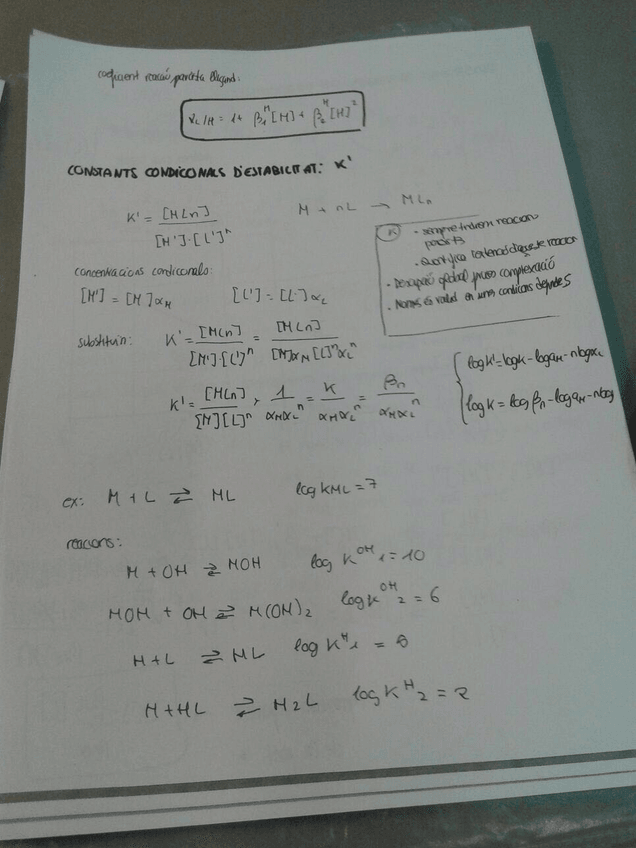 coeficient reacció paràsita lligand.
α_L/H = 1 + β₁ᴴ[H] + β₂ᴴ[H]²
CONSTANTS CONDICIONALS D'ESTABILITAT: K'
K' = [MLn] / [M']·[L']ⁿ
M + nL → MLn
K
- sempre tindrem reaccions
paràsites
- Quantifica l'extensió d'aquesta reacció
- Descripció global procés complexació
- Només és vàlid en unes condicions definides
concentracions condicionals:
[M'] = [M] α_M
[L'] = [L] α_L
substituïn:
K' = [MLn] / [M']·[L']ⁿ = [MLn] / [M]α_M [L]ⁿ α_Lⁿ
K' = [MLn] / [M][L]ⁿ · 1 / α_M α_Lⁿ = K / α_M α_Lⁿ = βn / α_M α_Lⁿ
log K' = log K - log α_M - n log α_L
log K = log βn - log α_M - n log
ex: M + L ⇌ ML log K_ML = 7
reaccions:
M + OH ⇌ MOH log K^OH ₁ = 10
MOH + OH ⇌ M(OH)₂ log K^OH ₂ = 6
H + L ⇌ HL log K^H ₁ =
H + HL ⇌ H₂L log K^H ₂ = 2